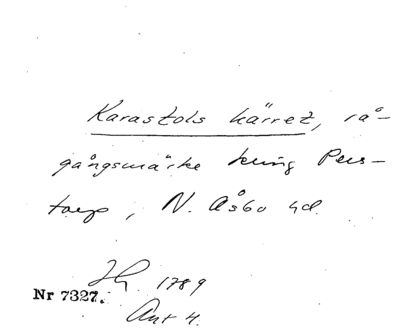 Karastols kärret, rå-
gångsmärke kring Pers-
torp, N. Åsbo hd.
1789
Nr 7327.
Akt 4.